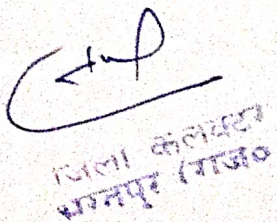 जिला कलेक्टर
भरतपुर (राज०